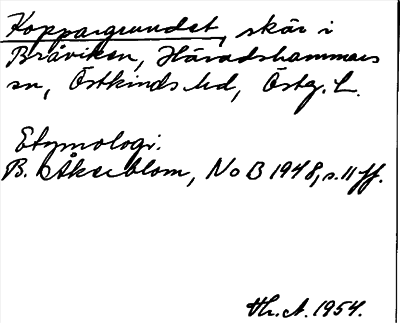 Koppargrundet, skär i
Bråviken, Häradshammars
sn, Östkinds hd, Östg. L.
Etymologi.
B. Åkerblom, NoB 1948, s. 11 ff.
Hr. A. 1954.